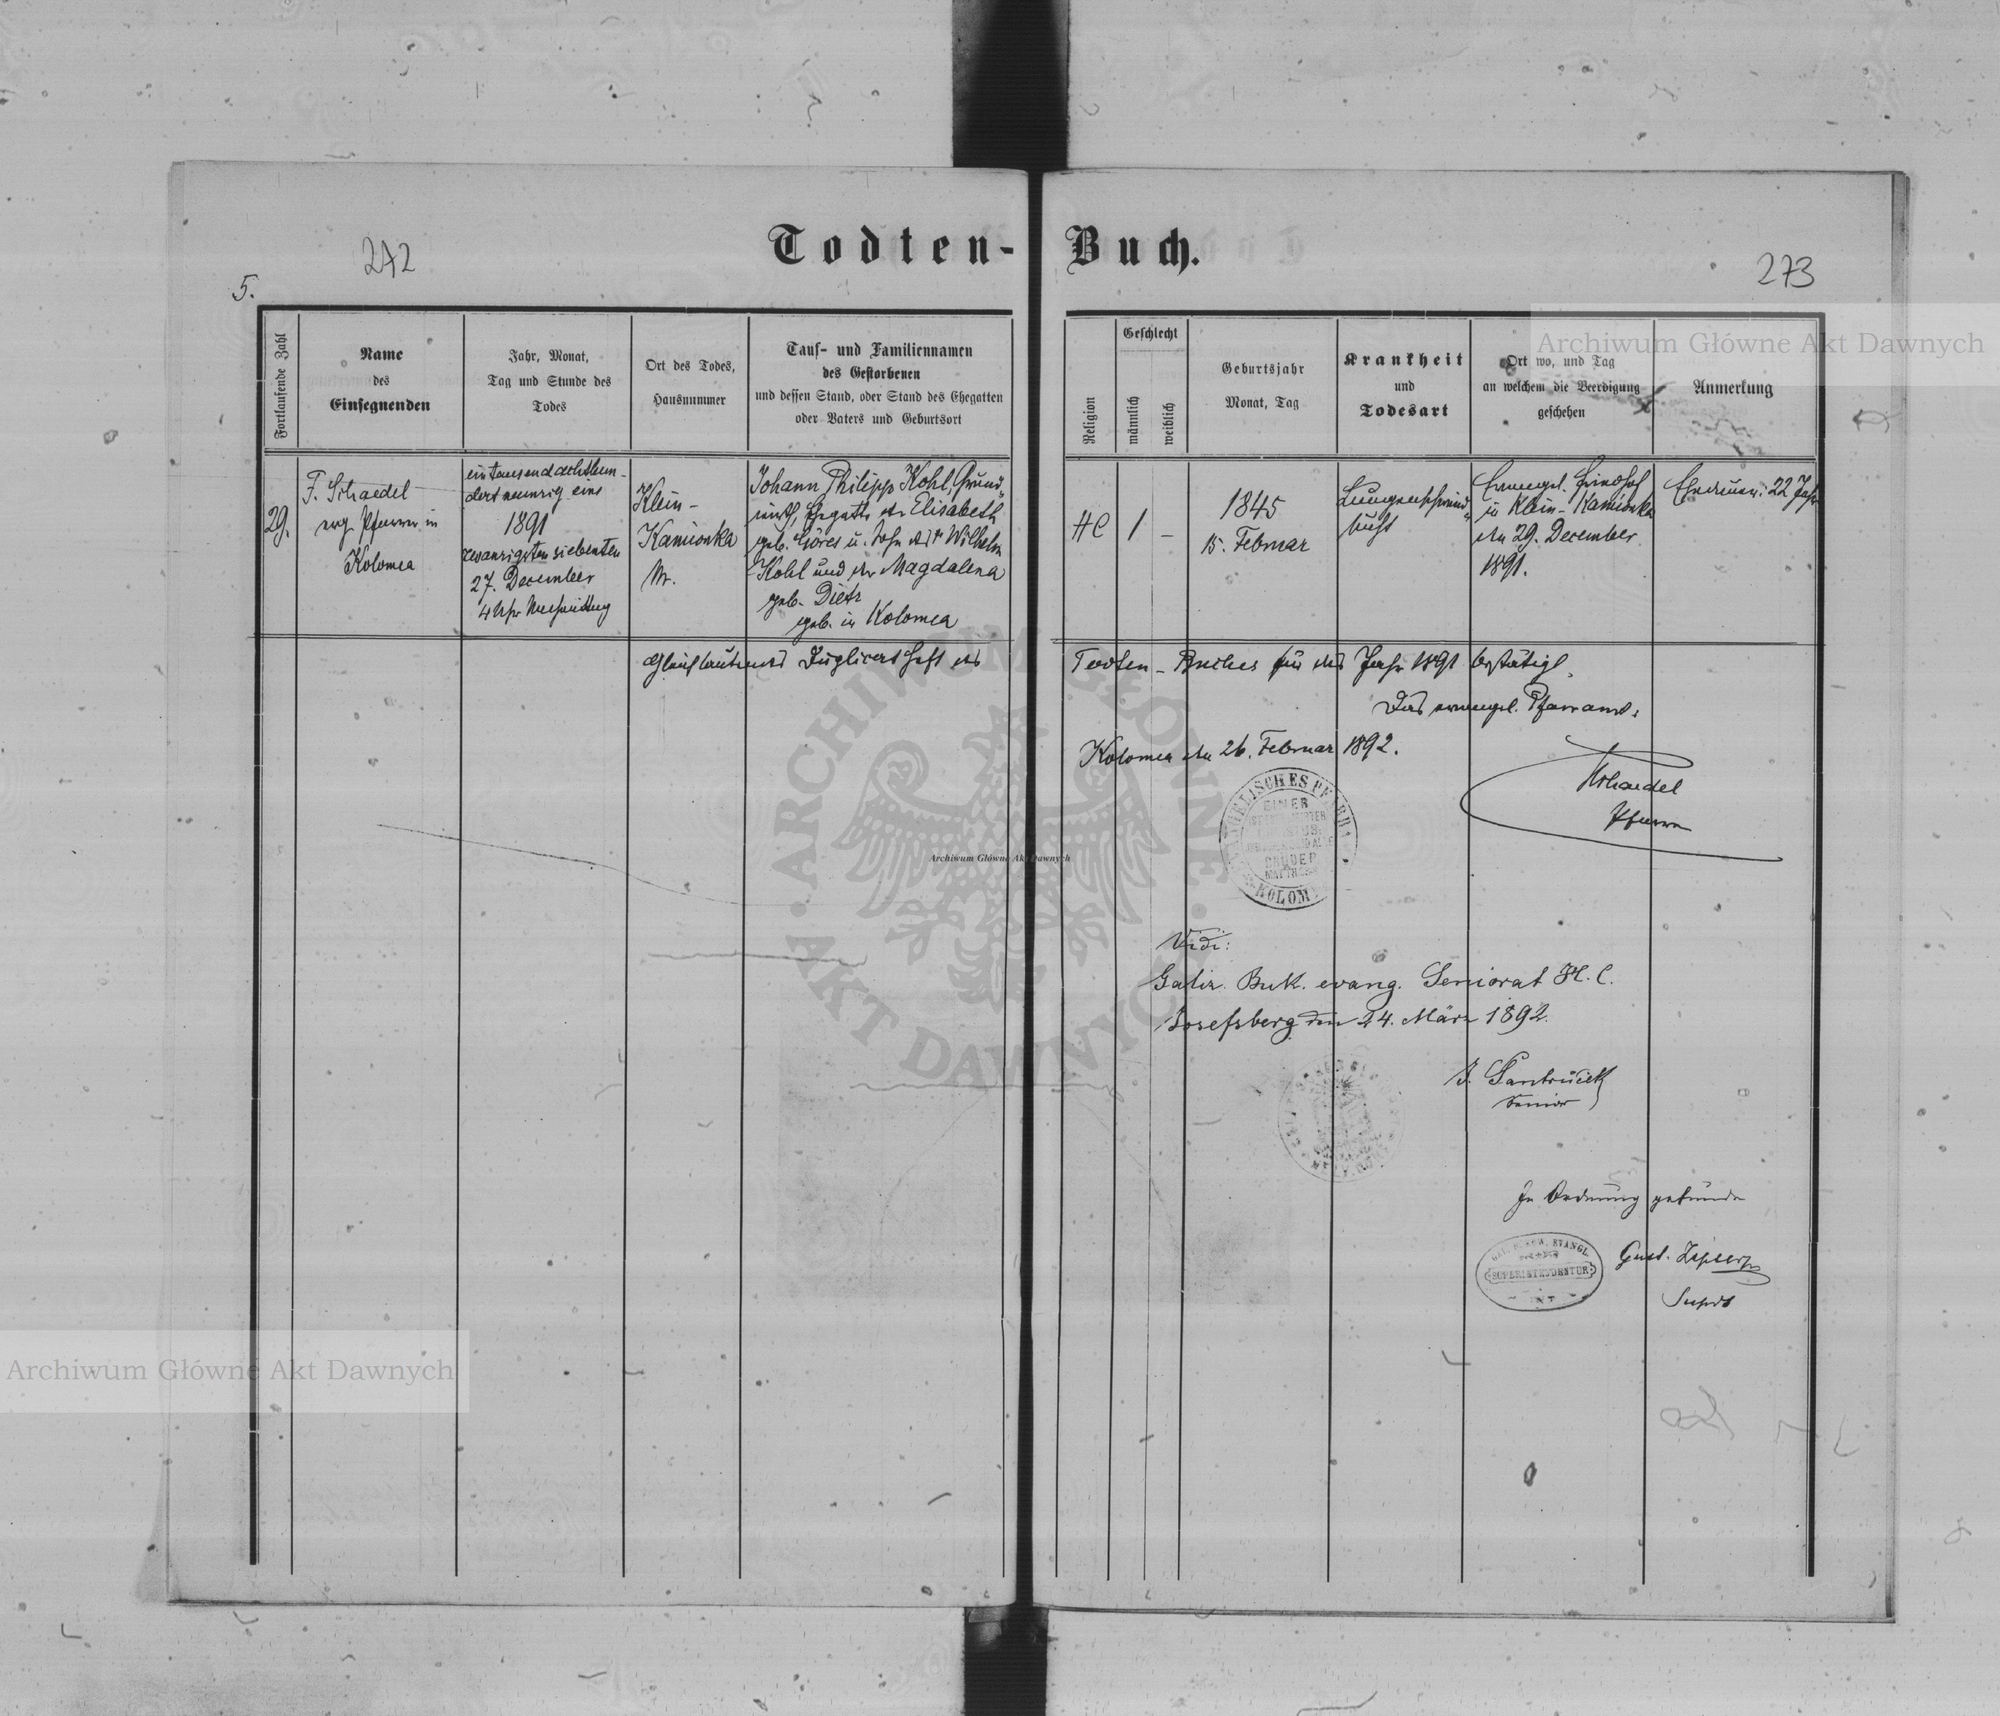 Todten-Buch.
242
273
5.
Fortlaufende Zahl
Name
des
Einsegnenden
Jahr, Monat,
Tag und Stunde des
Todes
Ort des Todes,
Hausnummer
Tauf- und Familiennamen
des Gestorbenen
und dessen Stand, oder Stand des Ehegatten
oder Vaters und Geburtsort
Religion
Geschlecht
männlich
weiblich
Geburtsjahr
Monat, Tag
Krankheit
und
Todesart
Ort wo, und Tag
an welchem die Beerdigung
geschehen
Anmerkung
29.
F. Schaedel
evg Pfarrer in
Kolomea
eintausendachthun-
dertneunzig eins
1891
zwanzigsten siebenten
27. December
4 Uhr
Klein-
Kamionka
Nr.
Johann Philipp Kohl, Grund-
wirth, Gatte der Elisabeth
geb. Göres u. Sohn des Wilhelm
Kohl und der Magdalena
geb. Dietz
geb. in Kolomea
HC
1
-
1845
15. Februar
Lungenschwind-
sucht
Evangel. Friedhof
in Klein-Kamionka
den 29. December
1891.
22 Jahr
Gleichlautendes Duplicat Heft des Todten-Buches für das Jahr 1891 bestätigt.
Das evangel. Pfarramt.
Kolomea den 26. Februar 1892.
Schaedel
Pfarrer
EINER
BRÜDER
KOLOM
Vidi:
Galiz. Buk. evang. Seniorat H. C.
Josefsberg den 24. März 1892.
Senior
In Ordnung gefunden
EVANGL.
SUPERINTENDENTUR
Gust. Zipser
Supdt
Archiwum Główne Akt Dawnych
Archiwum Główne Akt Dawnych
Archiwum Główne Akt Dawnych
ARCHIWUM GŁÓWNE AKT DAWNYCH